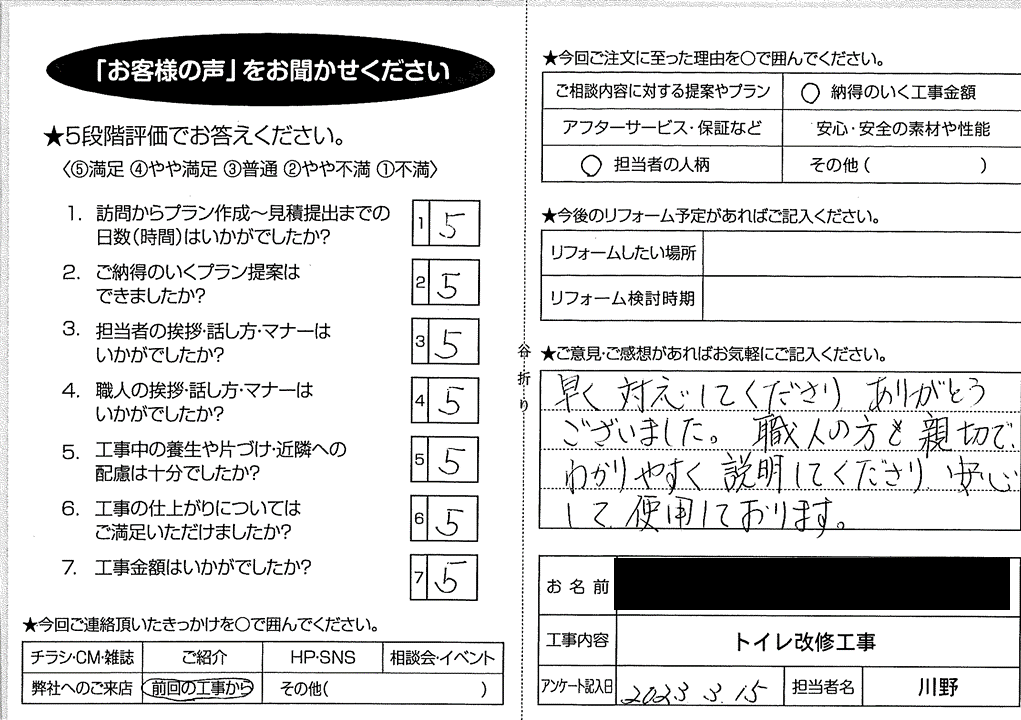 「お客様の声」をお聞かせください
★5段階評価でお答えください。
〈⑤満足 ④やや満足 ③普通 ②やや不満 ①不満〉
1. 訪問からプラン作成～見積提出までの
日数(時間)はいかがでしたか?
1 5
2. ご納得のいくプラン提案は
できましたか?
2 5
3. 担当者の挨拶・話し方・マナーは
いかがでしたか?
3 5
4. 職人の挨拶・話し方・マナーは
いかがでしたか?
4 5
5. 工事中の養生や片づけ・近隣への
配慮は十分でしたか?
5 5
6. 工事の仕上がりについては
ご満足いただけましたか?
6 5
7. 工事金額はいかがでしたか?
7 5
★今回ご連絡頂いたきっかけを○で囲んでください。
チラシ・CM・雑誌 ご紹介 HP・SNS 相談会・イベント
弊社へのご来店 前回の工事から その他( )
谷折り
★今回ご注文に至った理由を○で囲んでください。
ご相談内容に対する提案やプラン ○ 納得のいく工事金額
アフターサービス・保証など 安心・安全の素材や性能
○ 担当者の人柄 その他( )
★今後のリフォーム予定があればご記入ください。
リフォームしたい場所
リフォーム検討時期
★ご意見・ご感想があればお気軽にご記入ください。
早く対応してくださり ありがとう
ございました。職人の方も親切で、
わかりやすく説明してくださり 安心
して使用しております。
お名前
工事内容 トイレ改修工事
アンケート記入日 2023 3.15 担当者名 川野